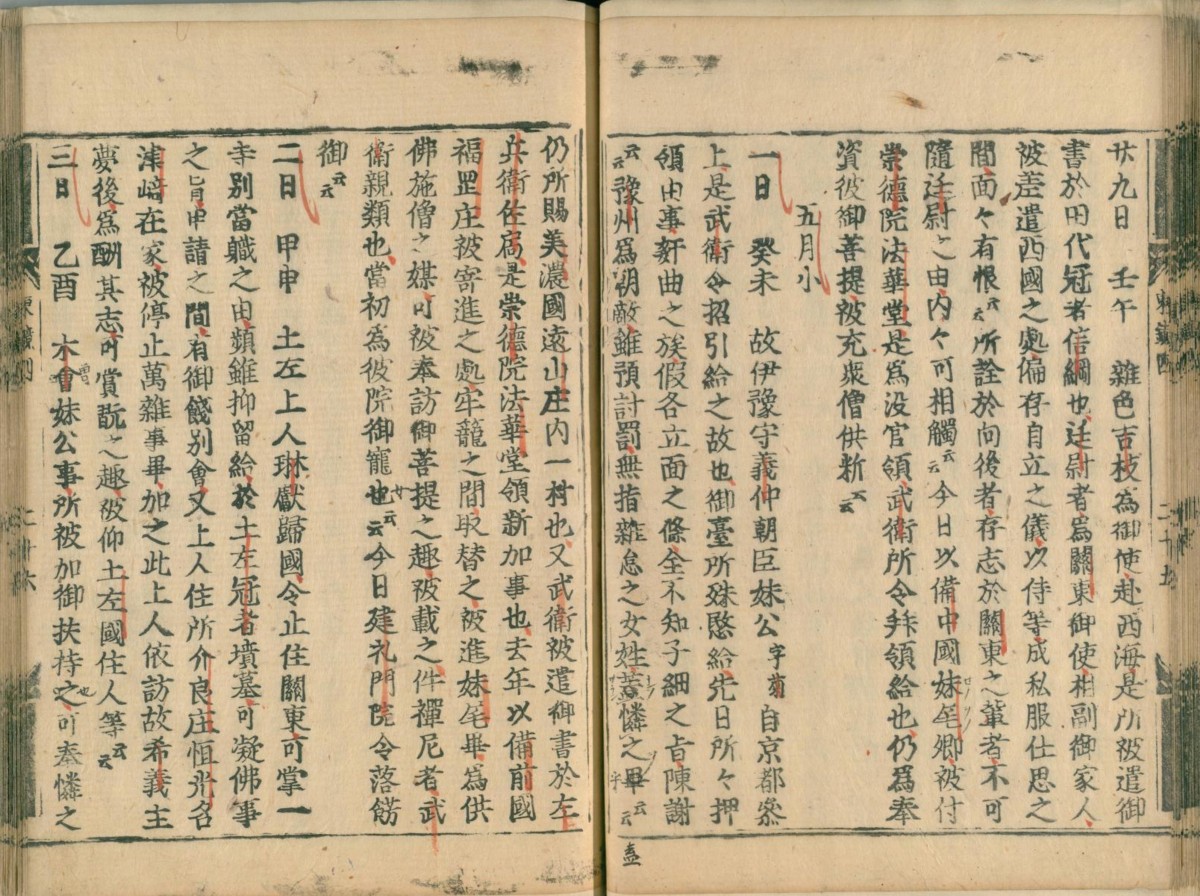 廿九日　壬午　雜色吉枝為御使赴西海是所被遣御
書於田代冠者信綱也廷尉者爲關東御使相副御家人
被差遣西國之處偏存自立之儀以侍等成私服仕思之
間面々有恨云云所詮於向後者存志於關東之輩者不可
隨廷尉之由内々可相觸云云今日以備中國妹尾郷被付
崇德院法華堂是爲没官領武衛所令拜領給也仍爲奉
資彼御菩提被充衆僧供析云云
五月小
一日　癸未　故伊豫守義仲朝臣妹公字菊自京都叅
上是武衛令招引給之故也御臺所殊愍給先日所々押
領由事奸曲之族假各立面之條全不知子細之旨陳謝
云云豫州爲朝敵雖預討罰無指雜怠之女姓憐之畢云云
仍所賜美濃國遠山庄内一村也又武衛被遣御書於左
兵衛佐局是崇德院法華堂領新加事也去年以備前國
福罡庄被寄進之處牢籠之間取替之被進妹尾畢爲供
佛施僧之媒可被奉訪御菩提之趣被載之件禪尼者武
衛親類也當初爲彼院御寵也云云今日建礼門院令落餝
御云云
二日　甲申　土左上人琳獻歸國令止住關東可掌一
寺別當職之由頻雖抑留給於土左冠者墳墓可凝佛事
之旨申請之間有御餞別會又上人住所介良庄恒光名
津﨑在家被停止萬雜事畢加之此上人依訪故希義主
夢後爲酬其志可賞翫之趣被仰土左國住人等云云
三日　乙酉　木曾妹公事所被加御扶持之也可奉憐之